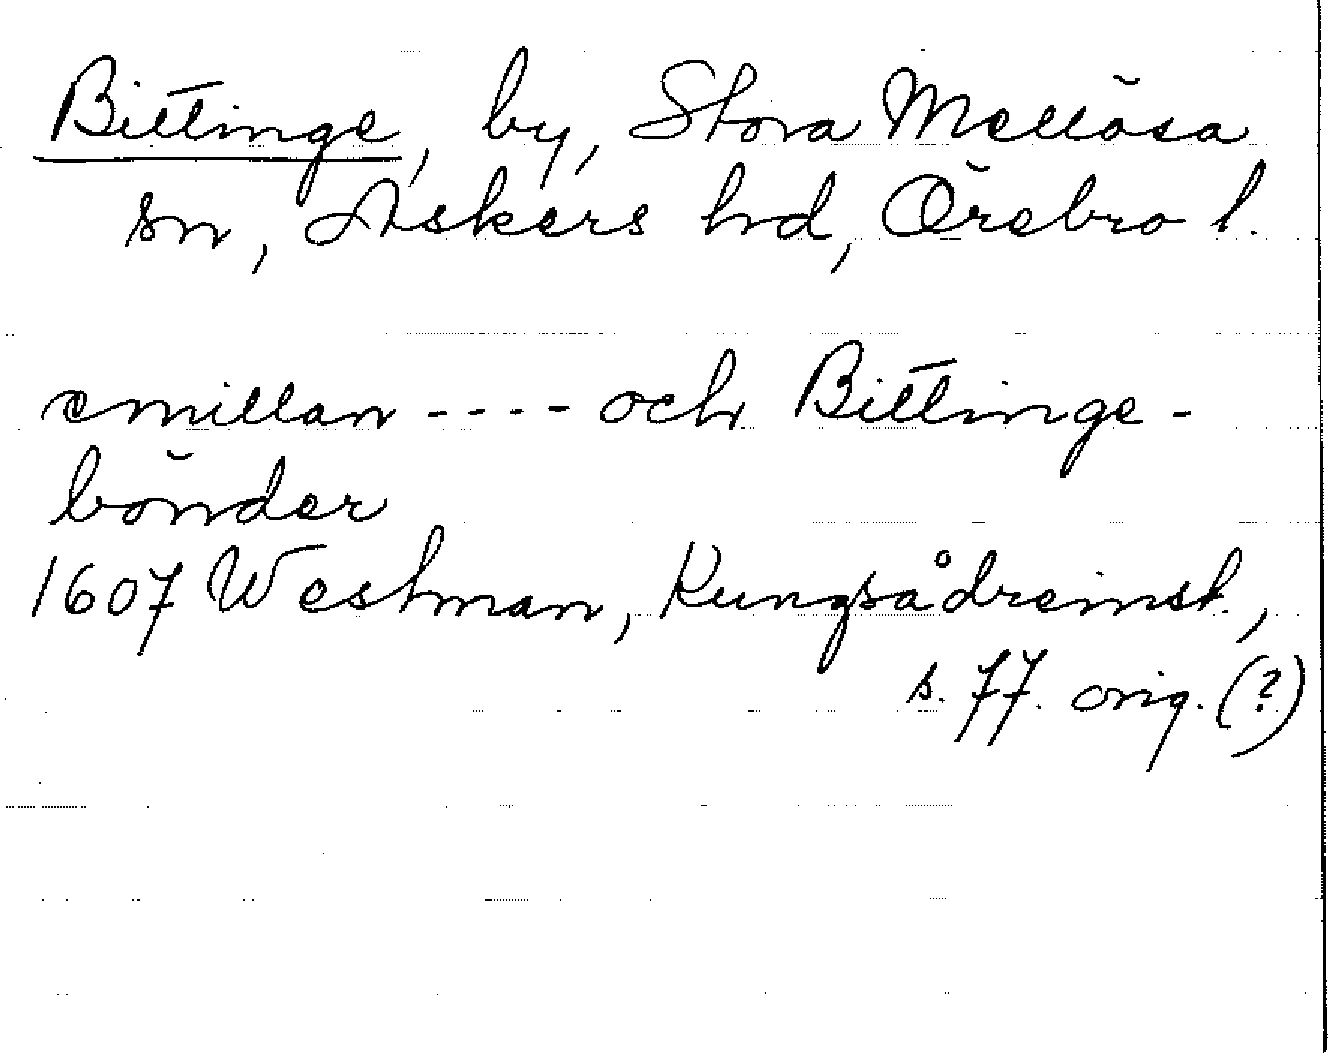 Bittinge, by, Stora Mellösa
sn, Askers hd, Örebro l.
emillan ---- och Bittinge-
bönder
1607 Westman, Kungsådreinst.,
s. 77. orig. (?)